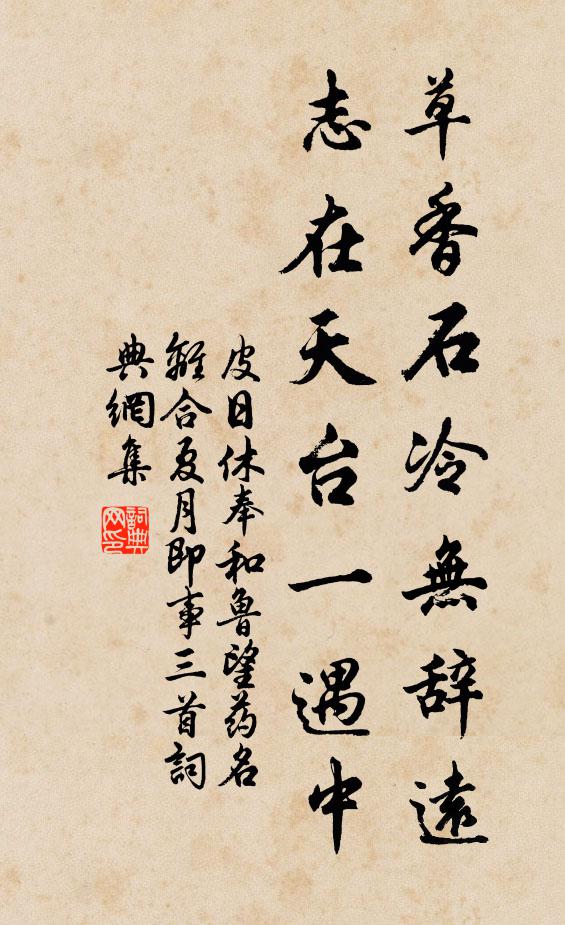 草香石冷無辞遠
志在天台一遇中
皮日休奉和魯望药名
離合夏月即事三首詞
典網集
詞典網印